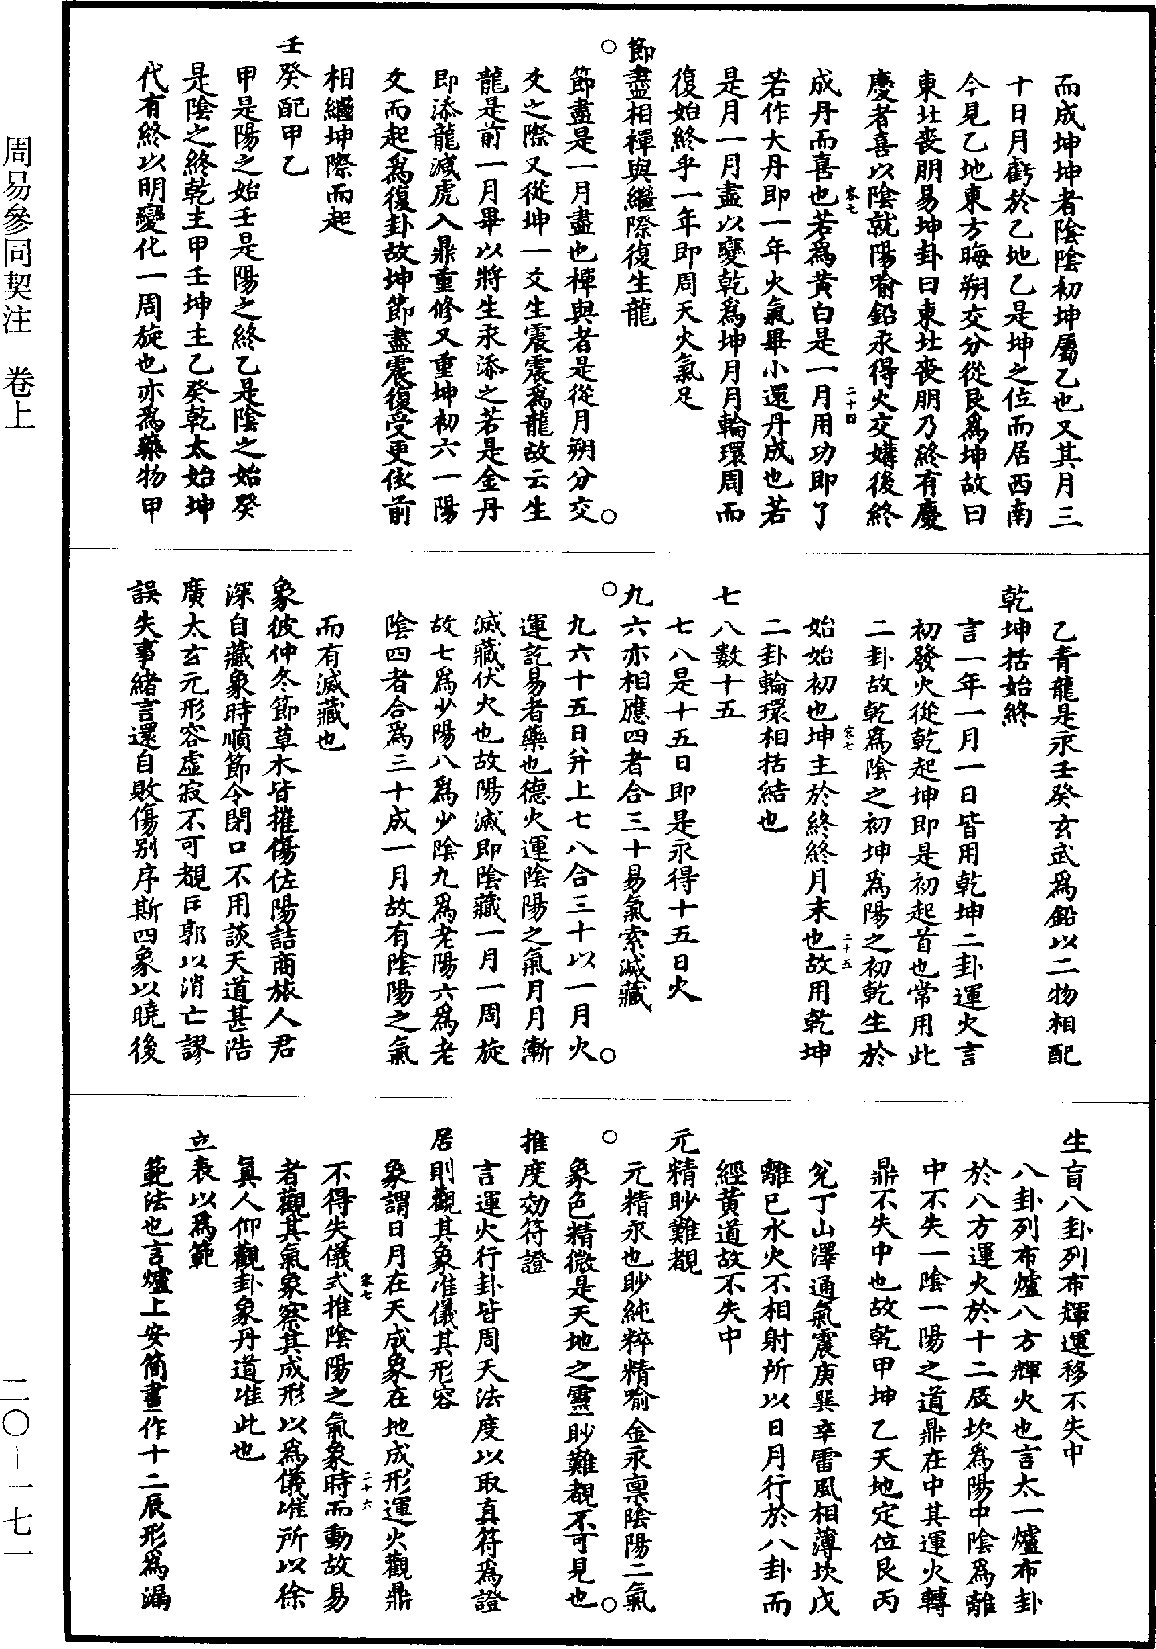 周易參同契注　卷上
二〇－一七一
而成坤坤者陰陰初坤屬乙也又其月三
十日月虧於乙地乙是坤之位而居西南
今見乙地東方晦朔交分從艮為坤故曰
東北喪朋易坤卦曰東北喪朋乃終有慶
慶者喜以陰就陽喻鉛汞得火交媾後終
成丹而喜也若為黃白是一月用功即了
若作大丹即一年火氣畢小還丹成也若
是月一月盡以變乾為坤月月輪環周而
復始終乎一年即周天火氣足
節盡相禪與繼際復生龍
節盡是一月盡也禪與者是從月朔分交
爻之際又從坤一爻生震震為龍故云生
龍是前一月畢以將生汞添之若是金丹
即添龍減虎入鼎重修又重坤初六一陽
爻而起為復卦故坤節盡震復受更依前
相繼坤際而起
壬癸配甲乙
甲是陽之始壬是陽之終乙是陰之始癸
是陰之終乾主甲壬坤主乙癸乾太始坤
代有終以明變化一周旋也亦為藥物甲
乙青龍是汞壬癸玄武為鉛以二物相配
乾坤括始終
言一年一月一日皆用乾坤二卦運火言
初發火從乾起坤即是初起首也常用此
二卦故乾為陰之初坤為陽之初乾生於
始始初也坤主於終終月末也故用乾坤
二卦輪環相括結也
七八數十五
七八是十五日即是汞得十五日火
九六亦相應四者合三十易氣索滅藏
九六十五日并上七八合三十以一月火
運訖易者藥也德火運陰陽之氣月月漸
滅藏伏火也故陽滅即陰藏一月一周旋
故七為少陽八為少陰九為老陽六為老
陰四者合為三十成一月故有陰陽之氣
而有滅藏也
象彼仲冬節草木皆摧傷佐陽詰商旅人君
深自藏象時順節令閉口不用談天道甚浩
廣太玄元形容虛寂不可覩匡郭以消亡謬
誤失事緒言還自敗傷別序斯四象以曉後
生盲八卦列布輝運移不失中
八卦列布爐八方輝火也言太一爐布卦
於八方運火於十二辰坎為陽中陰為離
中不失一陰一陽之道鼎在中其運火轉
鼎不失中也故乾甲坤乙天地定位艮丙
兌丁山澤通氣震庚巽辛雷風相薄坎戊
離巳水火不相射所以日月行於八卦而
經黃道故不失中
元精眇難覩
元精汞也眇純粹精喻金汞稟陰陽二氣
象色精微是天地之靈眇難覩不可見也
推度効符證
言運火行卦皆周天法度以取真符為證
居則觀其象准儀其形容
象謂日月在天成象在地成形運火觀鼎
不得失儀式推陰陽之氣象時而動故易
者觀其氣象察其成形以為儀准所以徐
真人仰觀卦象丹道准此也
立表以為範
範法也言爐上安簡畫作十二辰形為漏
容七
二十四
容七
二十五
容七
二十六